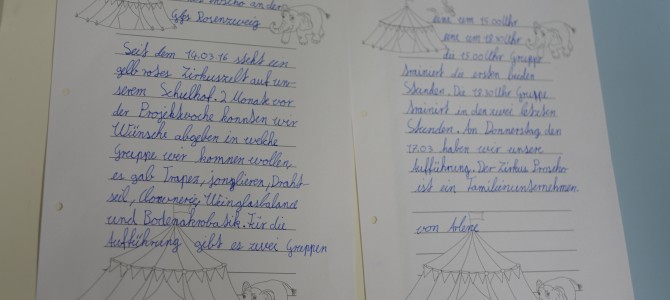 an der
Gfs Rosenzweig
Seit dem 14.03.16 steht ein
gelb rotes Zirkuszelt auf un-
serem Schulhof. 2 Monate vor
der Projektwoche konnten wir
Wünsche abgeben in welche
Gruppe wir kommen wollen,
es gab Trapez, jonglieren, Draht
seil, Clownerie, Weinglasbalance
und Bodenakrobatik. Für die
Aufführung gibt es zwei Gruppen
eine um 15.00 Uhr
eine um 18.30 Uhr
die 15.00 Uhr Gruppe
trainiert die ersten beiden
Stunden. Die 18.30 Uhr Gruppe
trainirt in den zwei letzten
Stunden. Am Donnerstag den
17.03. haben wir unsere
Aufführung. Der Zirkus Proscho
ist ein Familienunternehmen.
von Arlene